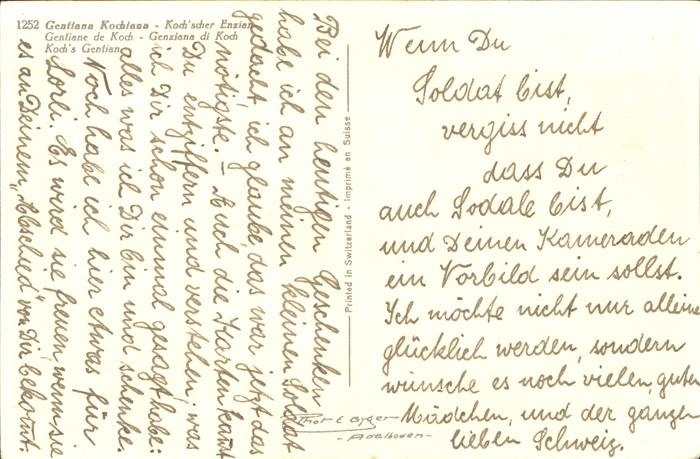 1252 Gentiana Kochiana - Koch'scher Enzian
Gentiane de Koch - Genziana di Koch
Koch's Gentian
Bei den heutigen Geschenken
habe ich an meinen kleinen Soldat
gedacht, ich glaube, das war jetzt das
nötigste. - Auch die Karten kannst
Du entziffern und verstehen: was
ich Dir schon einmal gesagt habe:
alles was ich Dir bin und schenke.
Noch habe ich hier etwas für
Lorli. Es wird sie freuen, wenn sie
es an Deinem "Abschied" von Dir bekommt.
Printed in Switzerland - Imprimé en Suisse
Wenn Du
Soldat bist,
vergiss nicht
dass Du
auch Sodale bist,
und Deinen Kameraden
ein Vorbild sein sollst.
Ich möchte nicht nur alleine
glücklich werden, sondern
wünsche es noch vielen, guten
Mädchen, und der ganzen
lieben Schweiz.
Phot. E. Gyger
- Adelboden -